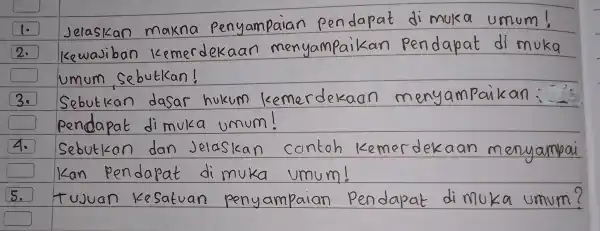 1. Jelaskan makna Penyampaian Pendapat di muka umum!
2. Kewajiban kemerdekaan menyampaikan Pendapat di muka
umum, Sebutkan!
3. Sebutkan dasar hukum kemerdekaan menyampaikan :
Pendapat di muka umum!
4. Sebutkan dan Jelaskan contoh kemerdekaan menyampai
kan Pendapat di muka umum!
5. Tujuan Kesatuan penyampaian Pendapat di muka umum?